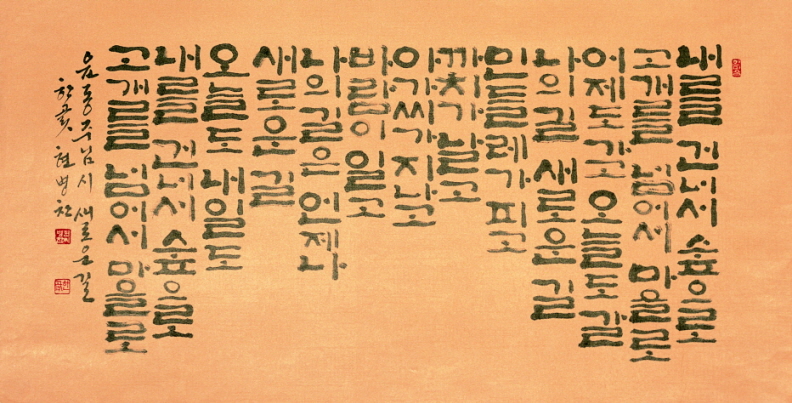 내를 건너서 숲으로
고개를 넘어서 마을로
어제도 가고 오늘도 갈
나의 길 새로운 길
민들레가 피고
까치가 날고
아가씨가 지나고
바람이 일고
나의 길은 언제나
새로운 길
오늘도 내일도
내를 건너서 숲으로
고개를 넘어서 마을로
윤동주님 시 새로운 길
한곬 현병찬